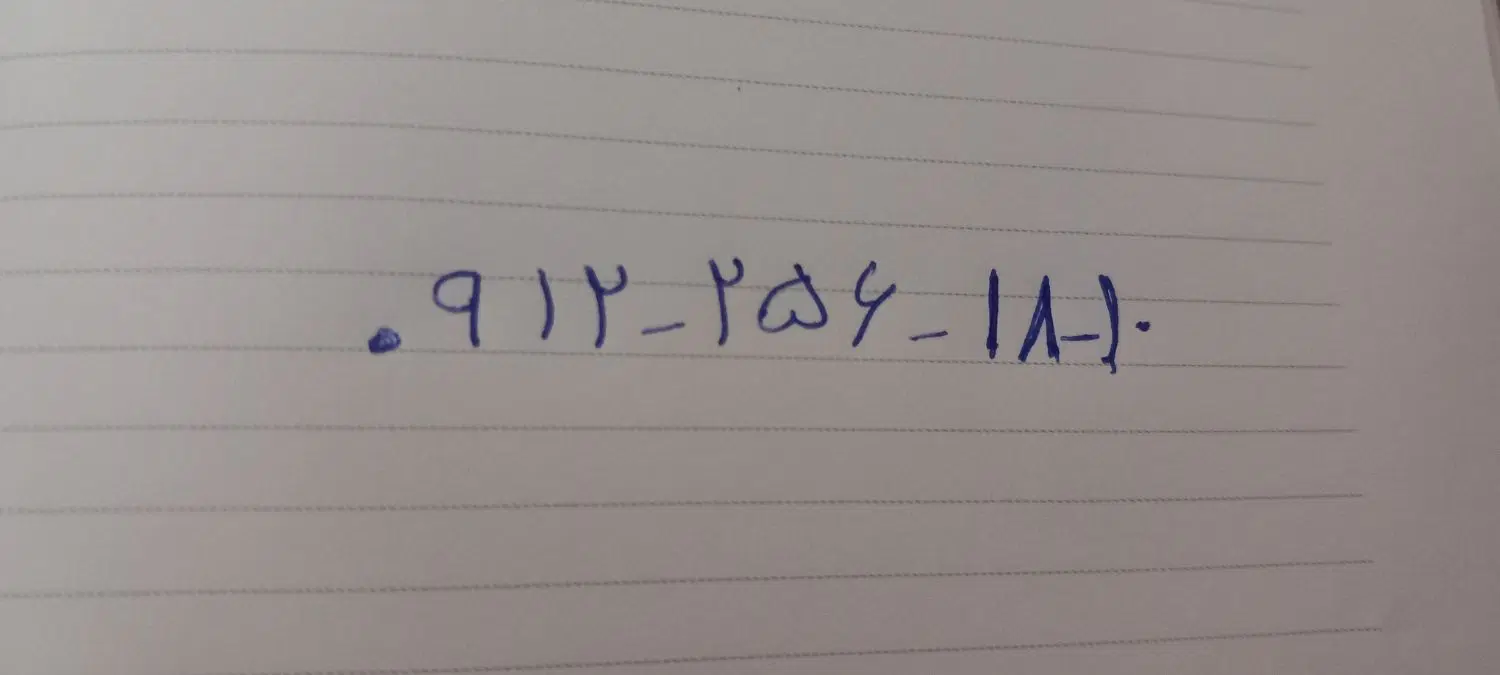 ۰۹۱۲-۲۵۶-۱۸-۱۰